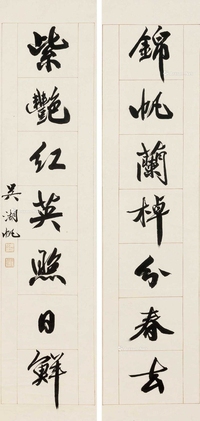 錦帆蘭棹分春去
紫艷紅英照日鮮
吳湖帆